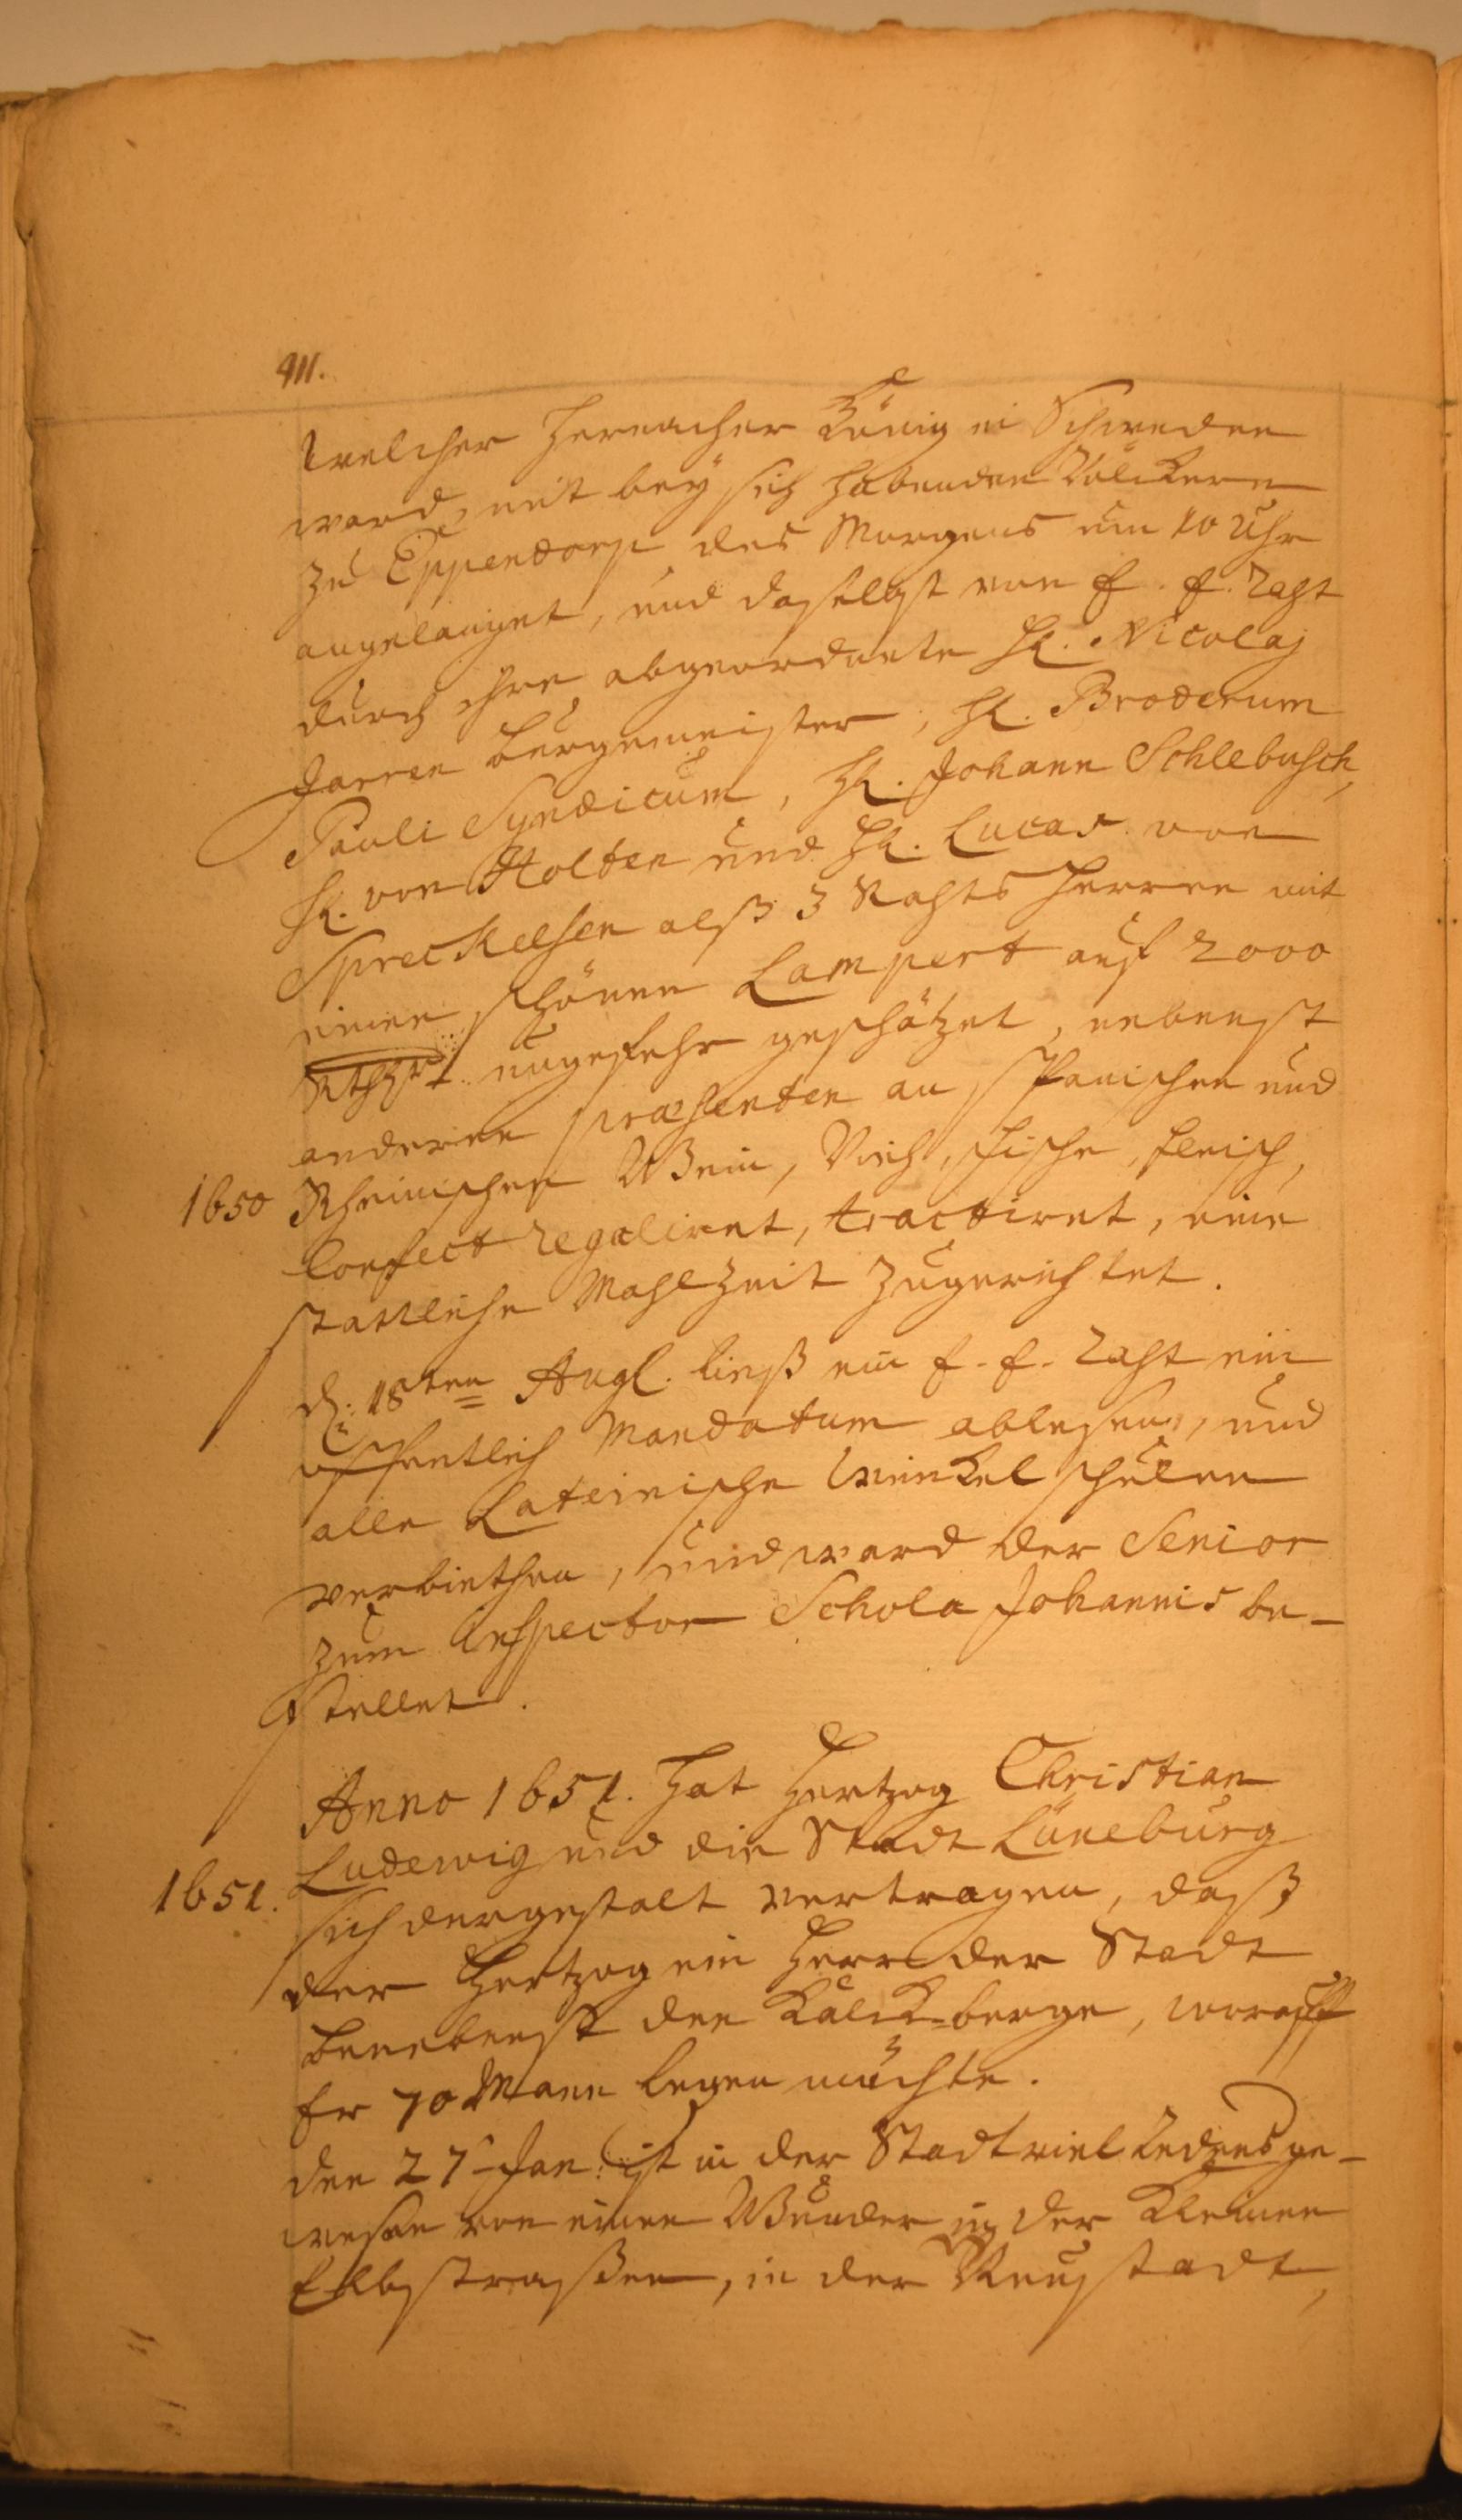 911.
welcher hernacher König in Schweden
ward, mit bey sich habenden Völckern
zu Eppendorp des Morgens um 10 Uhr
angelanget, und daselbst von E. E. Raht
durch ihre abgeordnete Hl. Nicolaj
Jarren Burgemeister, Hl. Broderum
Pauli Syndicum, Hl. Johann Schlebusch,
Hl. von Holten und Hl. Lucas von
Spreckelsen alß 3 Rahts Herren mit
einen schönen Lampert auf 2000
Rthlr. ungefehr geschätzet, nebenst
anderen præsenten an Spanischen und
1650 Rheinischen Wein, Vieh, Fische, Fleisch,
Confect regaliret, tractiret, eine
stattliche Mahlzeit zugerichtet.
d. 18ten Augl. ließ ein E. E. Raht ein
öffentlich Mandatum ablesen, und
alle Lateinische Winkel schulen
verbiethen, und ward der Senior
zum Inspector Schola Johannis be-
stellet.
Anno 1651. hat Hertzog Christian
Ludewig und die Stadt Lüneburg
1651. sich dergestalt vertragen, daß
der Hertzog ein Herr der Stadt
benebenst den Kalck-berge, worauff
Er 70 Mann legen möchte.
den 27 Jan. ist in der Stadt viel Redens ge-
wesen von einen Wunder in der Kleinen
Elbstraßen, in der Neustadt,